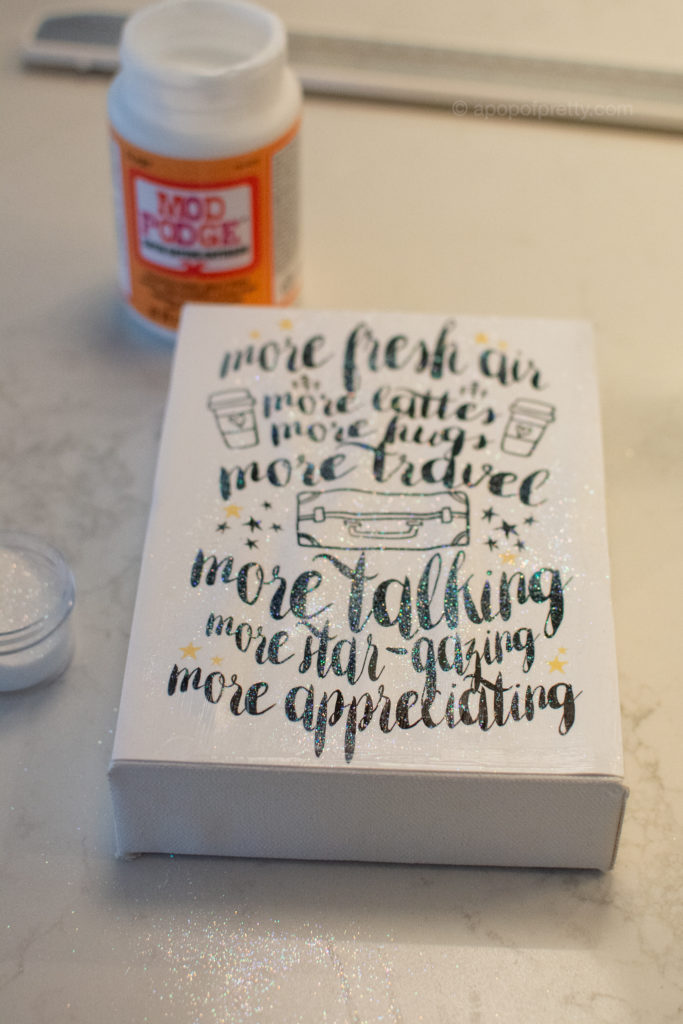 © apopofpretty.com
MOD
PODGE
more fresh air
more lattes
more hugs
more travel
more talking
more star-gazing
more appreciating